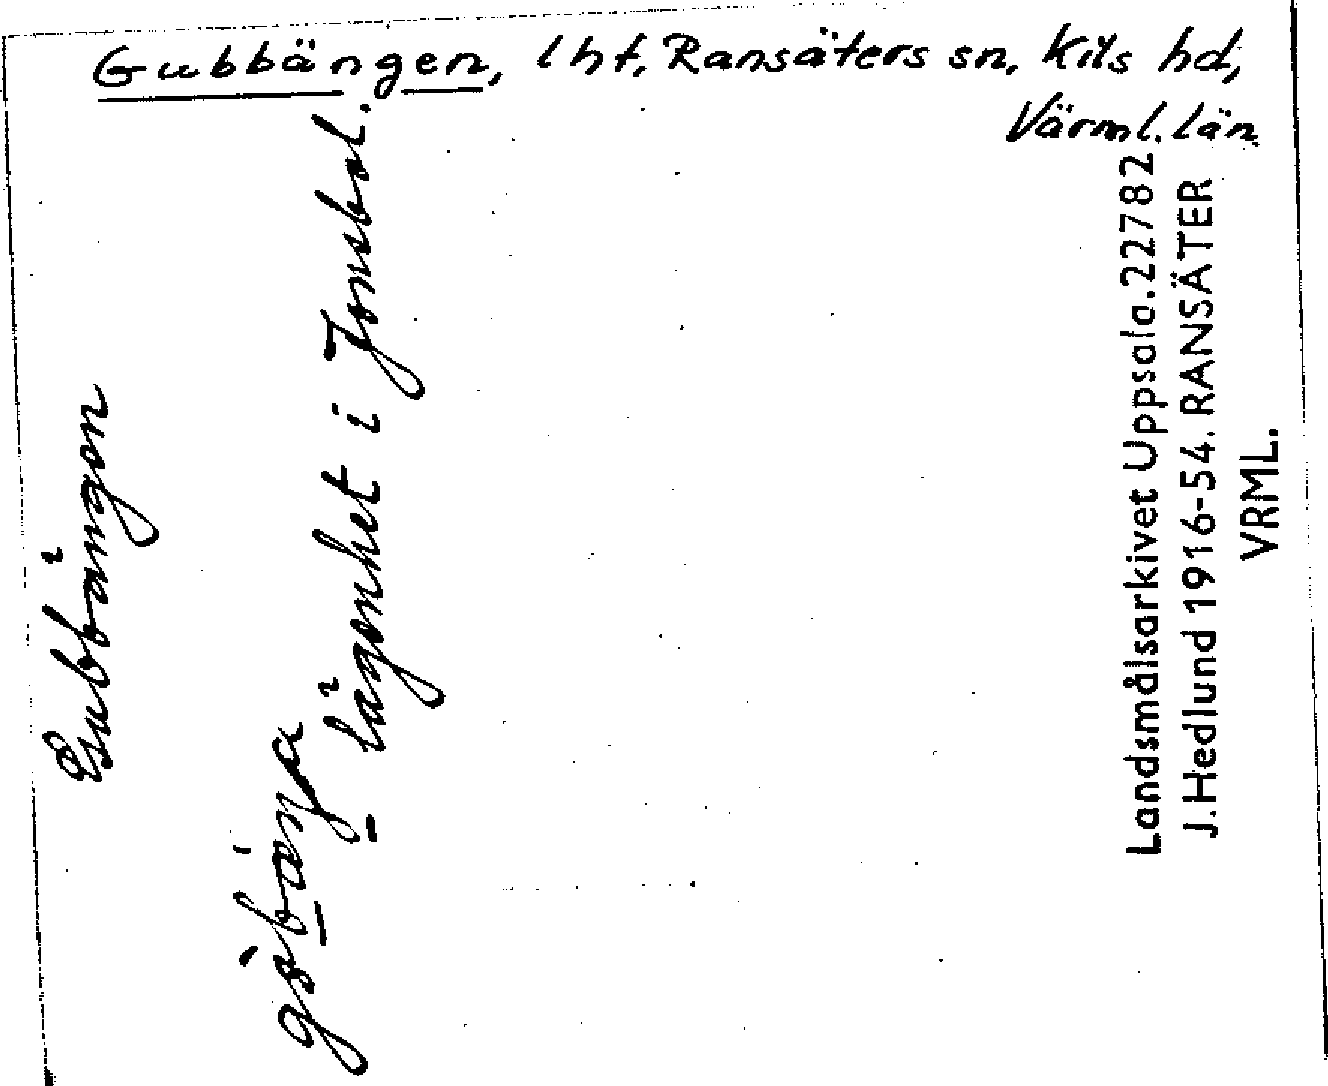 Gubbängen, lht, Ransäters sn, Kils hd,
Värml. län
Gubbängen
lägenhet i Jonsbol.
Landsmålsarkivet Uppsala. 22782
J. Hedlund 1916-54. RANSÄTER
VRML.